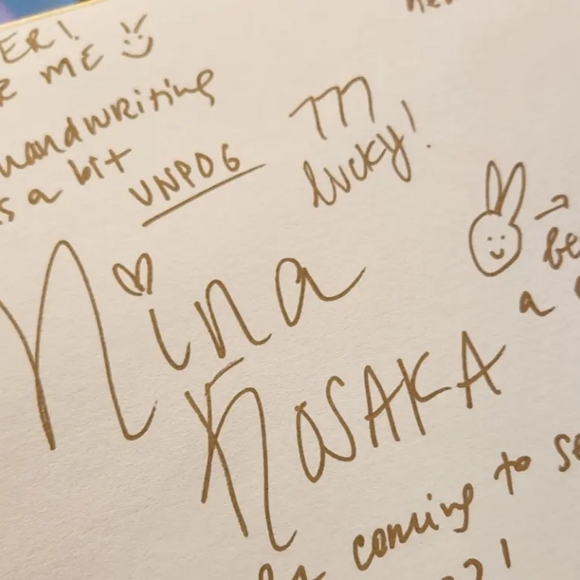 ER!
ME
handwriting
is a bit
UNPOG
777
lucky!
be
a
Nina
KOSAKA
coming to se